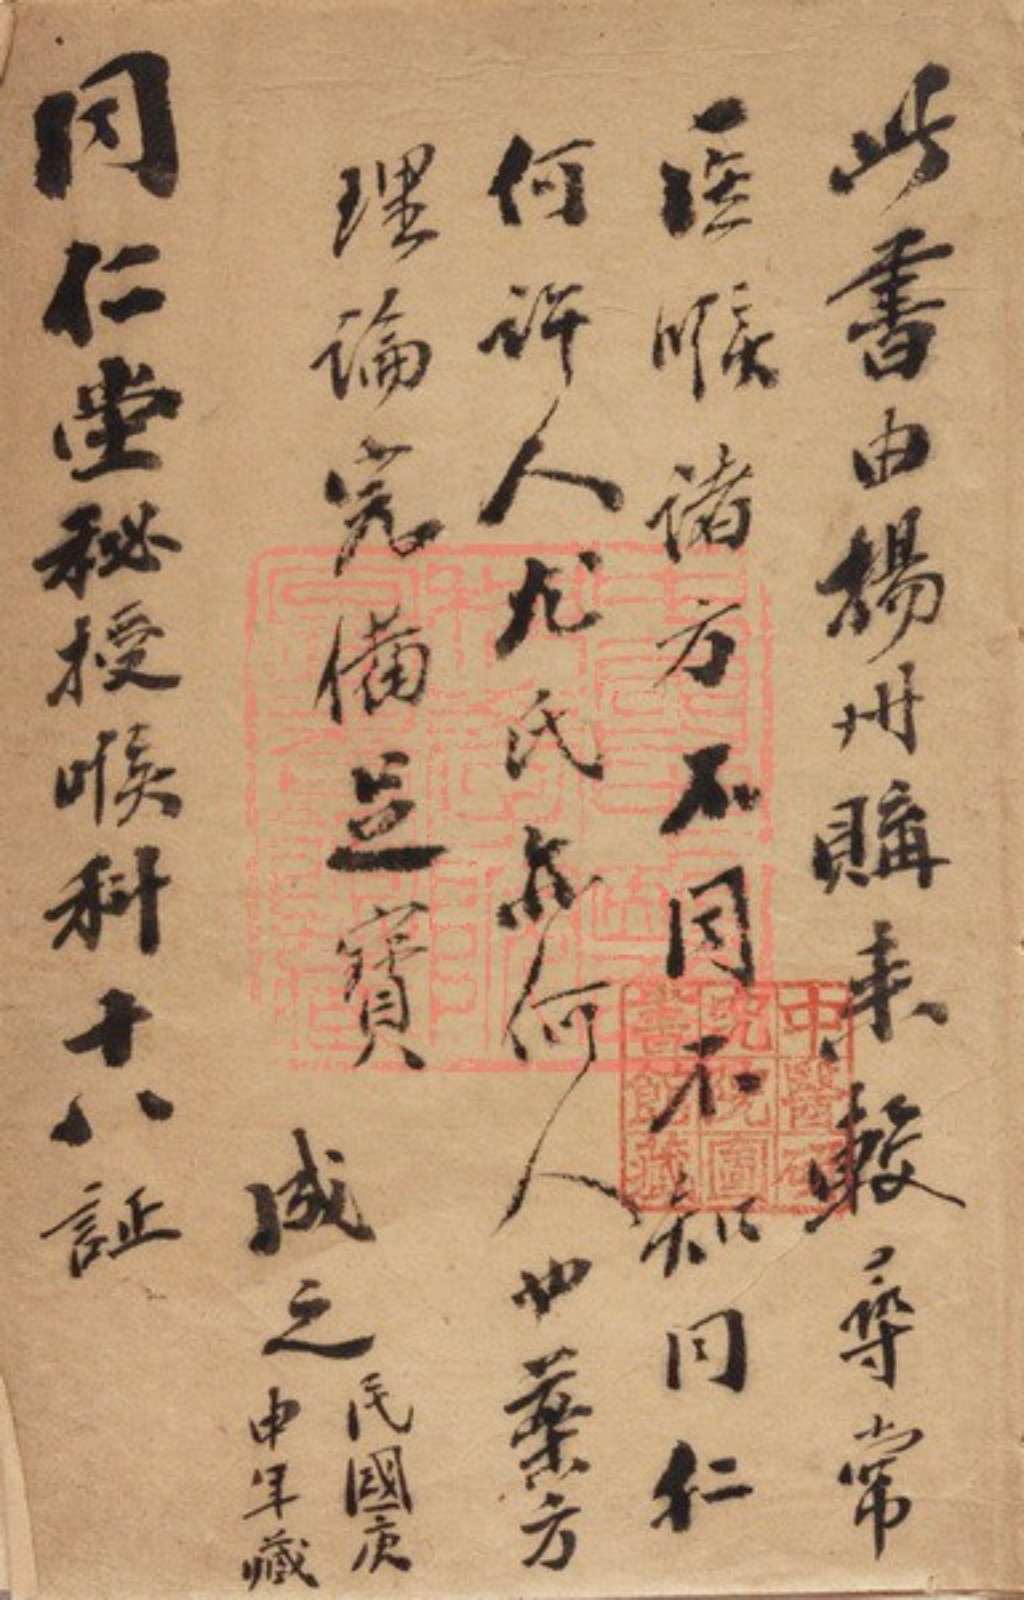 此書由揚州購来較尋常
医喉諸方不同不知同仁
何許人尤氏亦何人也藥方
理論完備足寶
成之
民國庚
申年藏
同仁堂秘授喉科十八証
中醫研
究院圖
書館藏